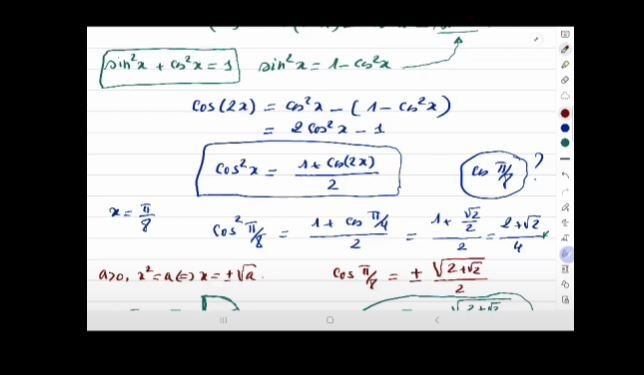 sin²x + cos²x = 1 sin²x = 1 - cos²x
cos(2x) = cos²x - (1 - cos²x)
= 2cos²x - 1
cos²x = (1 + cos(2x))/2 cos π/8 ?
x = π/8 cos² π/8 = (1 + cos π/4)/2 = (1 + √2/2)/2 = (2+√2)/4
a>0, x² = a (=) x = ±√a. cos π/8 = ± √(2+√2)/2
√(2+√2)